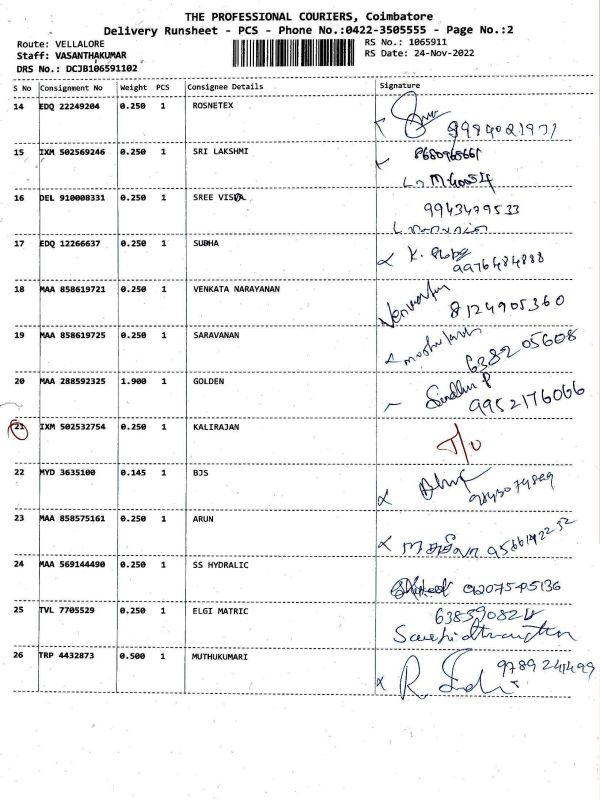 THE PROFESSIONAL COURIERS, Coimbatore
Delivery Runsheet - PCS - Phone No.:0422-3505555 - Page No.:2
Route: VELLALORE
RS No.: 1065911
Staff: VASANTHAKUMAR
RS Date: 24-Nov-2022
DRS No.: DCJB106591102
S No Consignment No Weight PCS Consignee Details Signature
14 EDQ 22249204 0.250 1 ROSNETEX
15 IXM 502569246 0.250 1 SRI LAKSHMI
16 DEL 910008331 0.250 1 SREE VISTA
9943479533
17 EDQ 12266637 0.250 1 SUDHA
9976484888
18 MAA 858619721 0.250 1 VENKATA NARAYANAN
8124905360
19 MAA 858619725 0.250 1 SARAVANAN
638205608
20 MAA 288592325 1.900 1 GOLDEN
9952176066
21 IXM 502532754 0.250 1 KALIRAJAN
22 MYD 3635100 0.145 1 BJS
23 MAA 858575161 0.250 1 ARUN
24 MAA 569144490 0.250 1 SS HYDRALIC
25 TVL 7705529 0.250 1 ELGI MATRIC
26 TRP 4432873 0.500 1 MUTHUKUMARI
9789241499